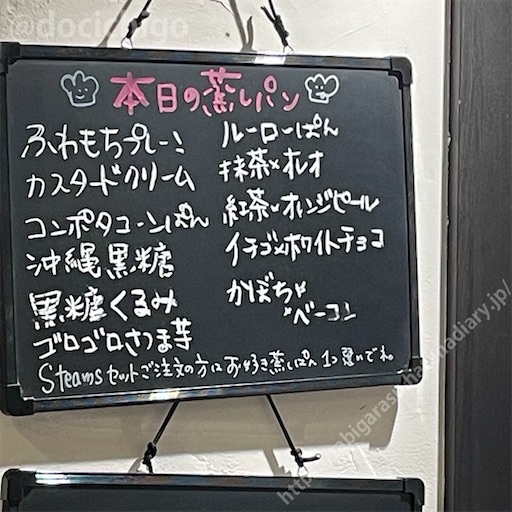 @docichigo
本日の蒸しパン
ふわもちプレーン
カスタードクリーム
コンポタコーンぱん
沖縄黒糖
黒糖くるみ
ゴロゴロさつま芋
ルーローぱん
抹茶×オレオ
紅茶×オレンジピール
イチゴ×ホワイトチョコ
かぼちゃ
×ベーコン
Steamsセットご注文の方はお好き蒸しぱん1コ選んでね